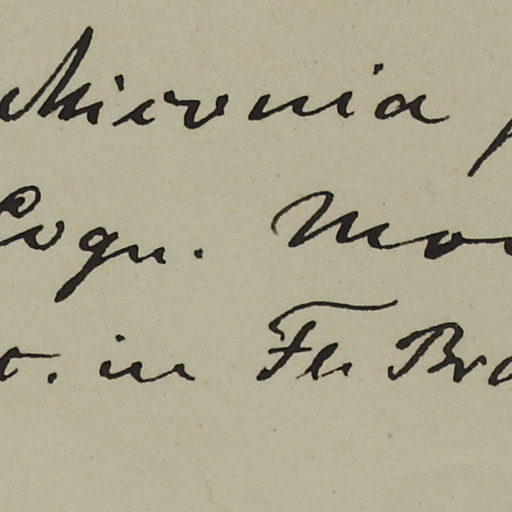 Miconia
Cogn.
t. in Fl. Bra